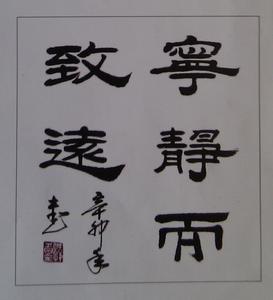 寧靜而
致遠
辛卯年